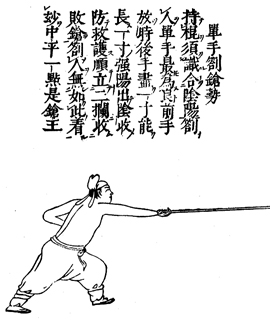 單手劄鎗勢
持棍須識合陰陽劄
人單手最為良前手
放時後手盡一寸能
長一寸强陽出陰收
防救護顧立二攔收
敗鎗劄人無如此着
妙中平一點是鎗王